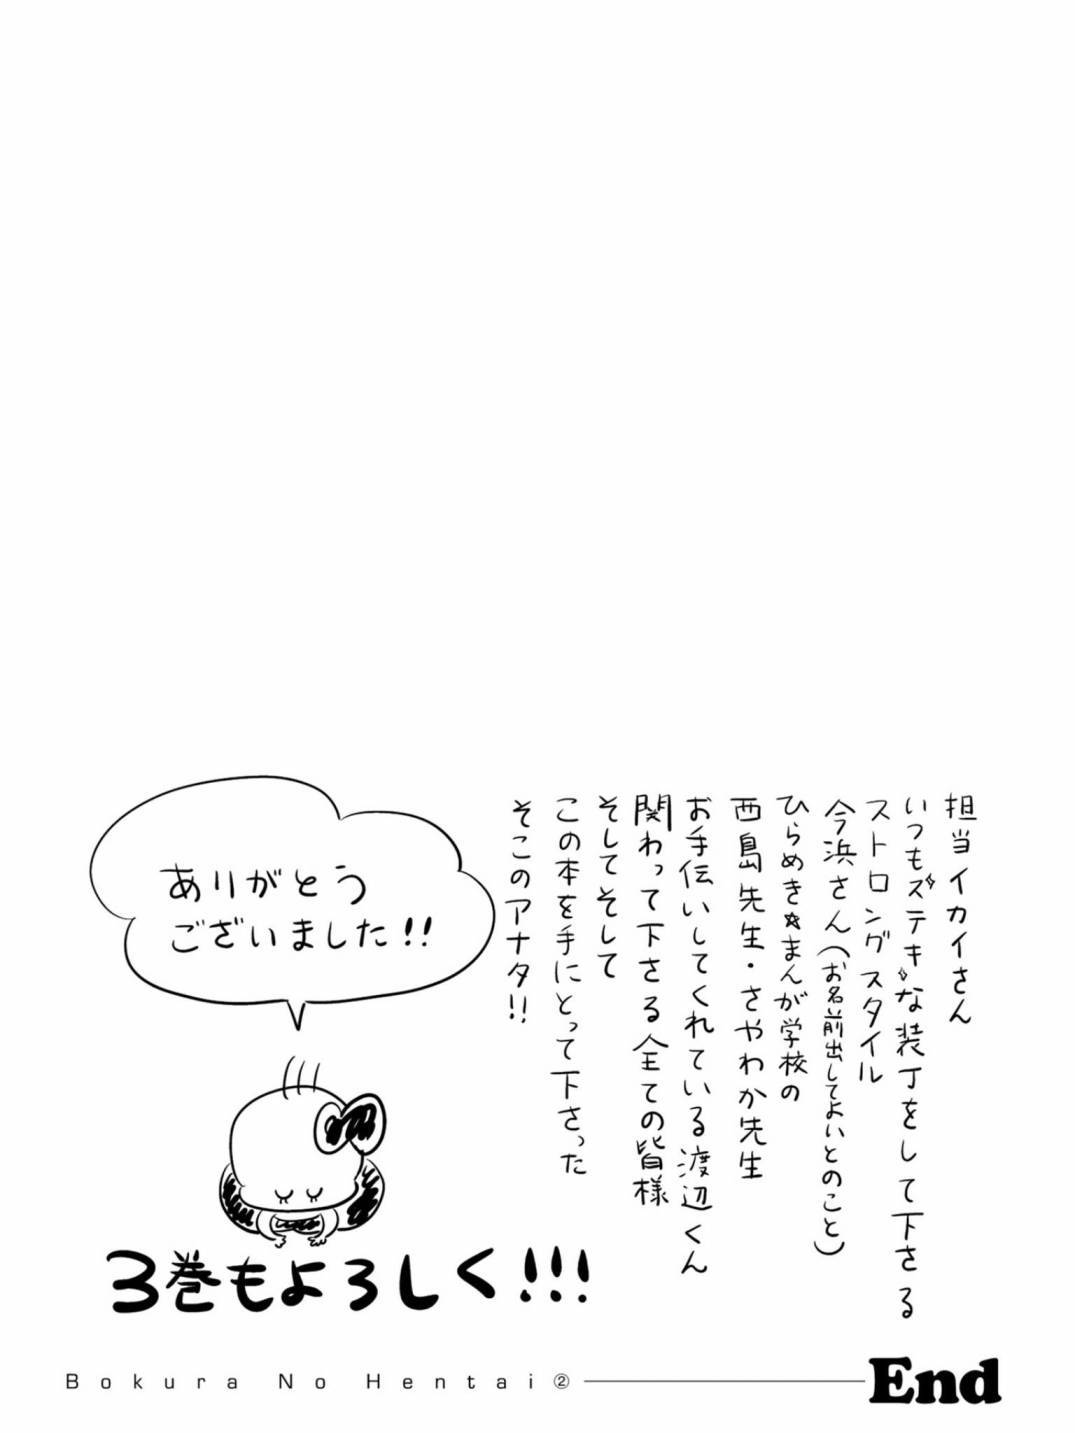 担当イカイさん
いつもステキな装丁をして下さる
ストロングスタイル
今浜さん(お名前出してよいとのこと)
ひらめき☆まんが学校の
西島先生・さやわか先生
お手伝いしてくれている渡辺くん
関わって下さる全ての皆様
そしてそして
この本を手にとって下さった
そこのアナタ!!
ありがとう
ございました!!
3巻もよろしく!!!
Bokura No Hentai②
End